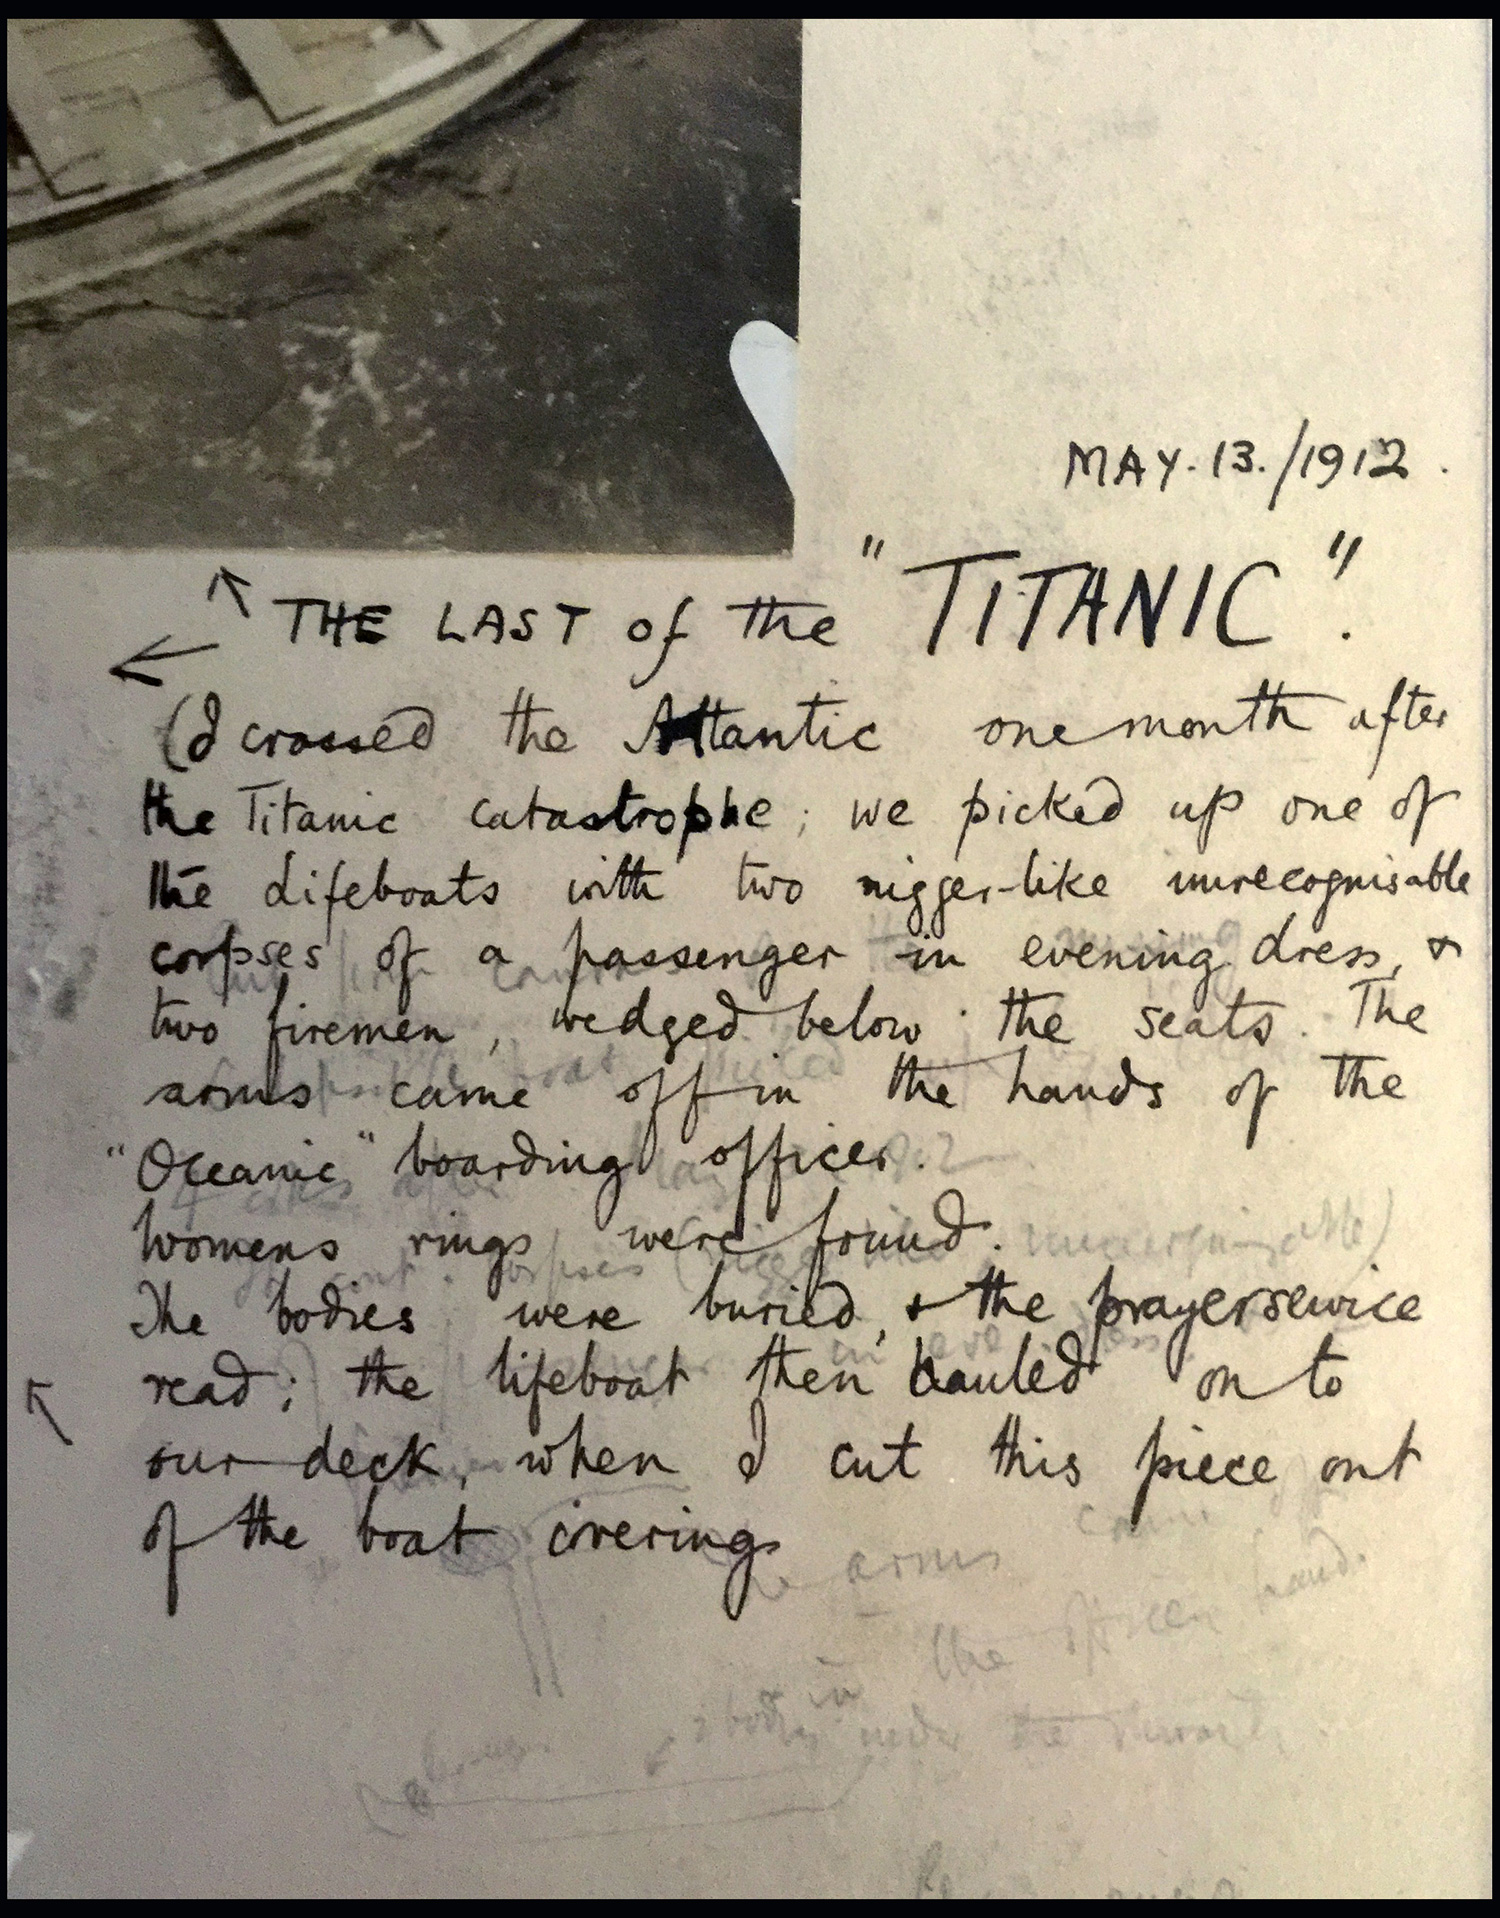 MAY. 13. / 1912 .
THE LAST of the "TITANIC".
(I crossed the Atlantic one month after
the Titanic catastrophe; we picked up one of
the Lifeboats with two nigger-like unrecognisable
corpses of a passenger in evening dress, &
two firemen, wedged below the seats. The
arms came off in the hands of the
"Oceanic" boarding officer.
Womens rings were found.
The bodies were buried, & the prayerservice
read; the lifeboat then hauled on to
our deck, when I cut this piece out
of the boat coverings
arms
the officers hand.
in
under the